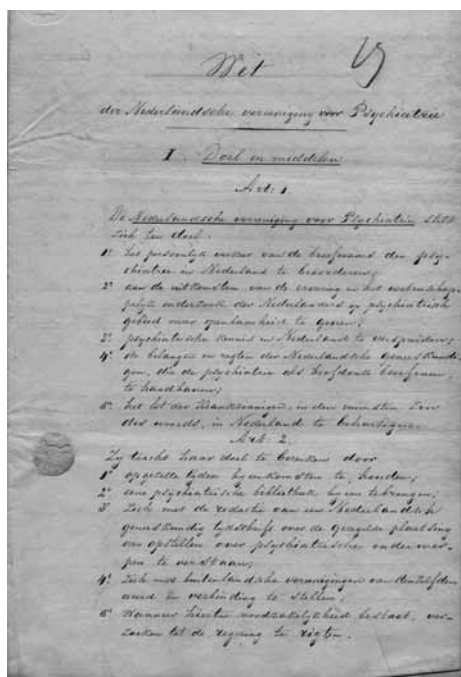 Wet
der Nederlandsche vereeniging voor Psychiatrie
I Doel en middelen
Art: 1.
De Nederlandsche vereeniging voor Psychiatrie stelt
zich ten doel:
1º het persoonlijk verkeer van de beoefenaars der psy-
chiatrie in Nederland te bevorderen;
2º aan de uitkomsten van de ervaring en het wetenschap-
pelijk onderzoek der Nederlanders op psychiatrisch
gebied meer openbaarheid te geven;
3º psychiatrische kennis in Nederland te verspreiden;
4º de belangen en regten der Nederlandsche geneeskundi-
gen, die de psychiatrie als hoofdvak beoefenen
te handhaven;
5º het lot der krankzinnigen, in den ruimsten zin
des woords, in Nederland te behartigen.
Art: 2.
Zij tracht haar doel te bereiken door
1º op gezette tijden bijeenkomsten te houden;
2º eene psychiatrische bibliotheek bijeen te brengen;
3º zich met de redactie van een Nederlandsch
geneeskundig tijdschrift over de geregelde plaatsing
van opstellen over psychiatrische onderwer-
pen te verstaan;
4º zich met buitenlandsche vereenigingen van denzelfden
aard in verbinding te stellen;
5º wanneer hiertoe noodzakelijkheid bestaat, ver-
zoeken tot de regering te rigten.